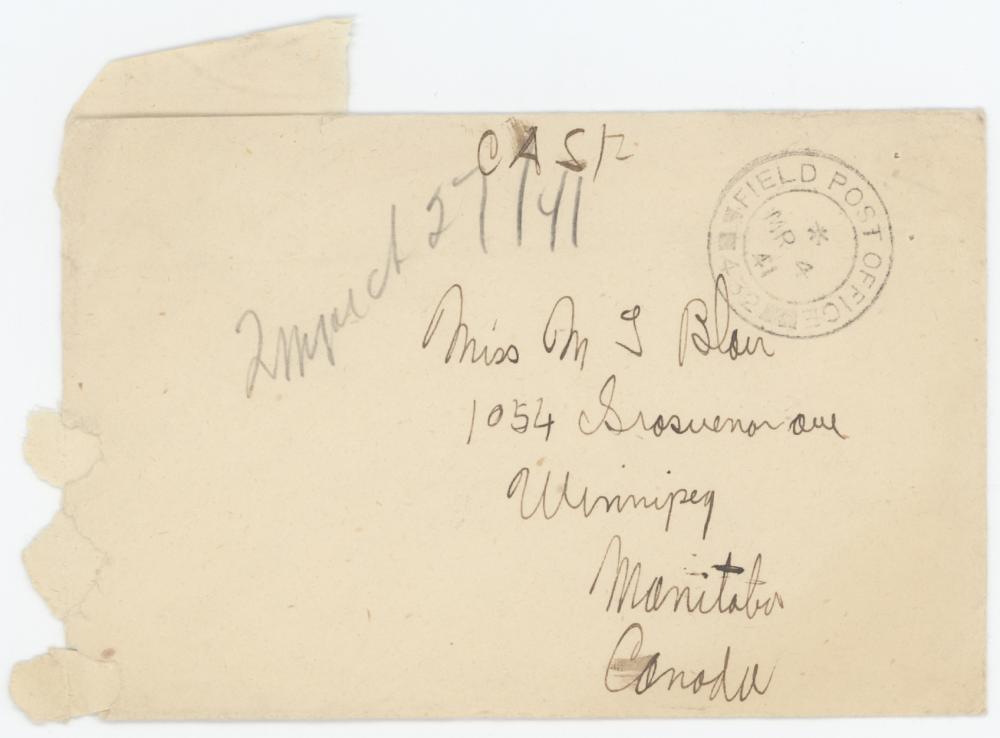 CASF
27/1/41
FIELD POST OFFICE
432
MR 4
41
Miss M I Blair
1054 Grosvenor ave
Winnipeg
Manitoba
Canada